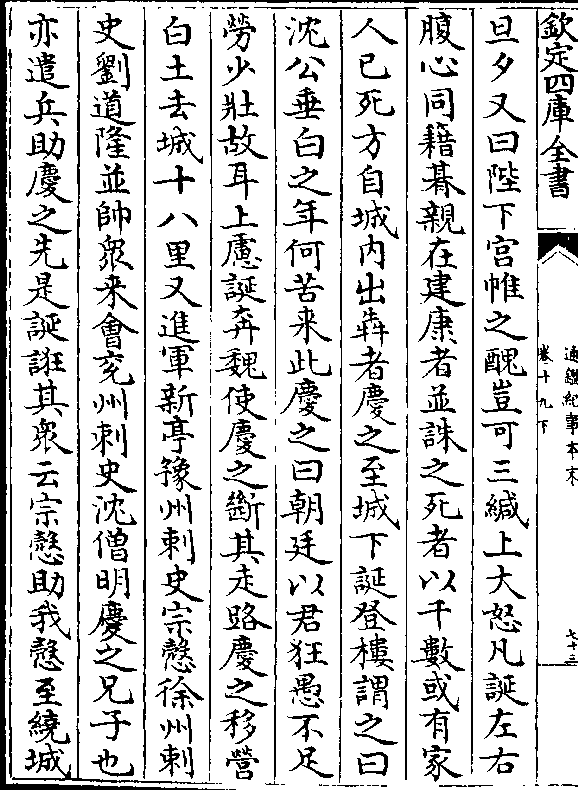 欽定四庫全書
通鑑紀事本末
卷十九下
七十三
旦夕又曰陛下宫帷之醜豈可三緘上大怒凡誕左右
腹心同籍朞親在建康者並誅之死者以千數或有家
人已死方自城内出犇者慶之至城下誕登樓謂之曰
沈公垂白之年何苦来此慶之曰朝廷以君狂愚不足
勞少壯故耳上慮誕奔魏使慶之斷其走路慶之移營
白土去城十八里又進軍新亭豫州刺史宗慤徐州刺
史劉道隆並帥衆来會兖州刺史沈僧明慶之兄子也
亦遣兵助慶之先是誕誑其衆云宗慤助我慤至繞城